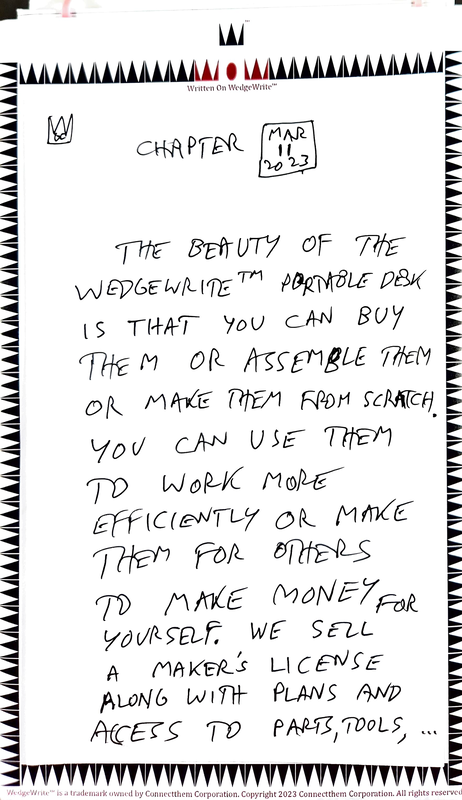 Written On WedgeWrite™
CHAPTER
MAR
11
2023
THE BEAUTY OF THE
WEDGEWRITE™ PORTABLE DESK
IS THAT YOU CAN BUY
THEM OR ASSEMBLE THEM
OR MAKE THEM FROM SCRATCH.
YOU CAN USE THEM
TO WORK MORE
EFFICIENTLY OR MAKE
THEM FOR OTHERS
TO MAKE MONEY FOR
YOURSELF. WE SELL
A MAKER'S LICENSE
ALONG WITH PLANS AND
ACCESS TO PARTS, TOOLS, ...
WedgeWrite™ is a trademark owned by Connectthem Corporation. Copyright 2023 Connectthem Corporation. All rights reserved